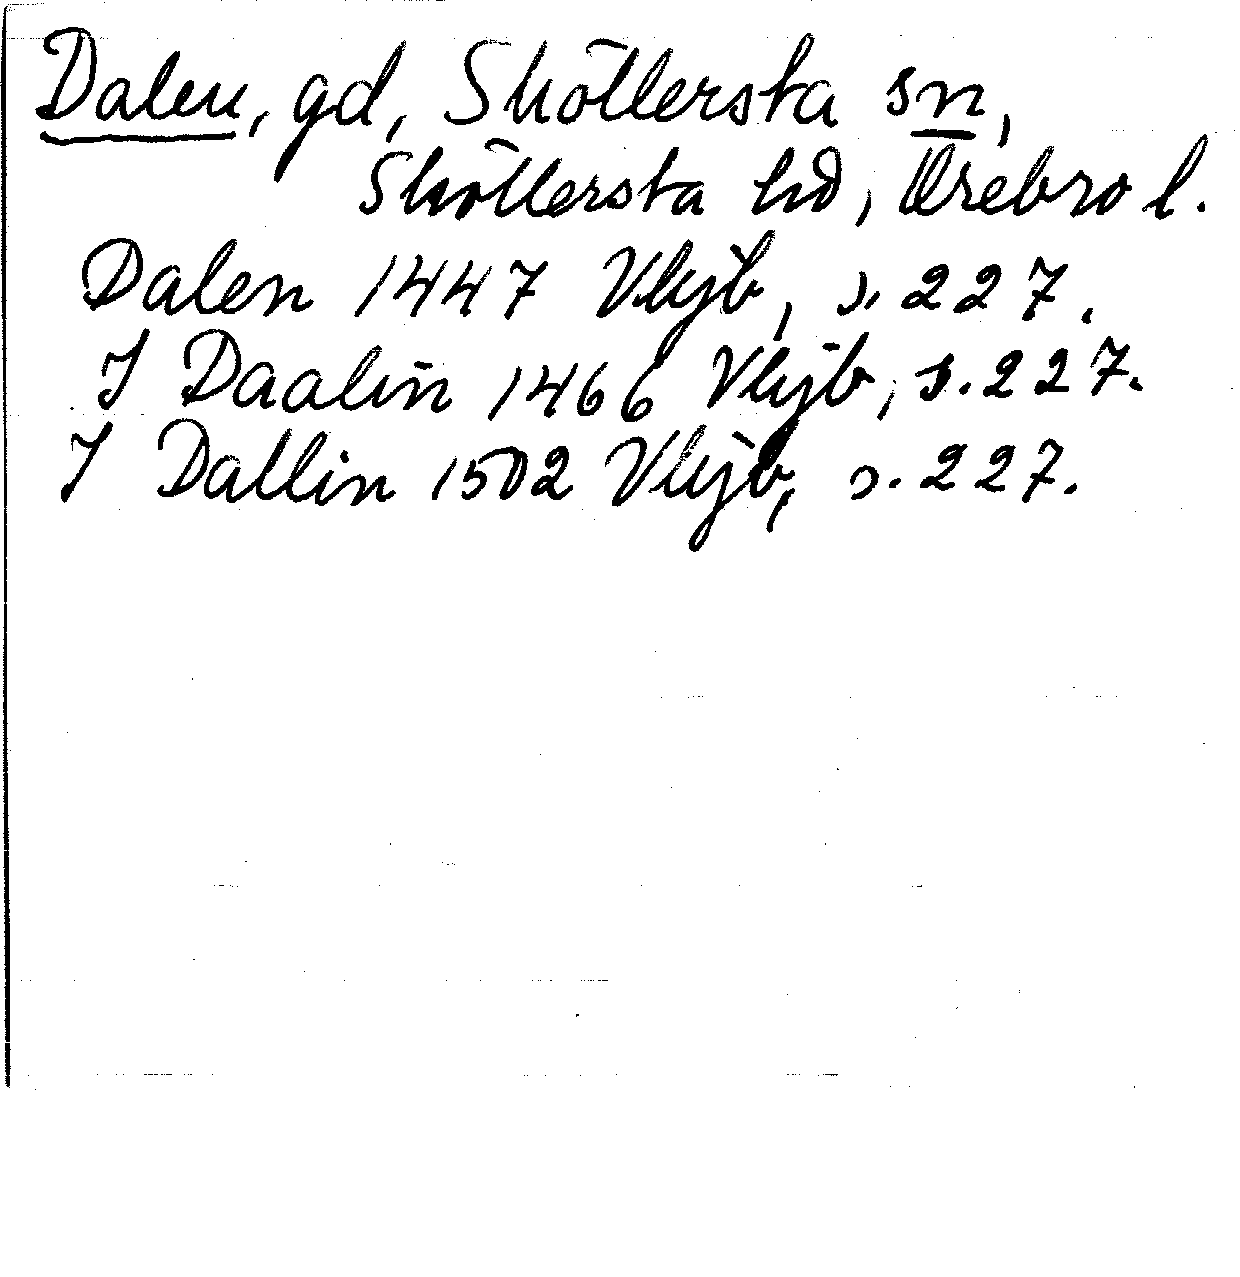 Dalen, gd, Sköllersta sn,
Sköllersta hd, Örebro l.
Dalen 1447 Vkjb, s. 227.
I Daalin 1466 Vkjb, s. 227.
I Dallin 1502 Vkjb, s. 227.